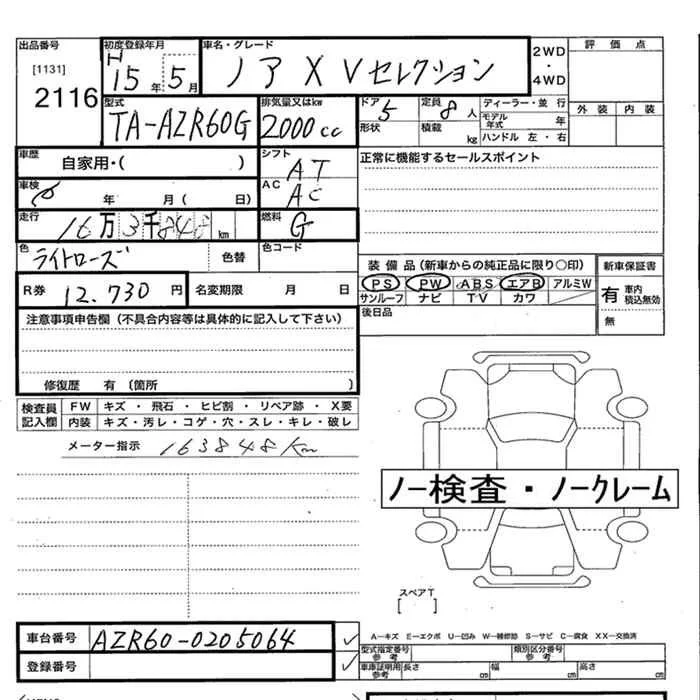 出品番号 初度登録年月 車名・グレード 2WD・4WD 評価点
[1131] H15年5月 ノア X Vセレクション
2116 外装 内装
型式 排気量又はkw ドア 5 定員 8人 ディーラー・並行
TA-AZR60G 2000cc 形状 積載 kg モデル年式 年
ハンドル 左・右
車歴 自家用・( ) シフト AT 正常に機能するセールスポイント
車検 年 月( 日) AC AC
走行 16万3千848km 燃料 G
色 ライトローズ 色替 色コード
装備品(新車からの純正品に限り〇印) 新車保証書
PS PW ABS エアB アルミW 有 車内積込無効
R券 12.730円 名変期限 月 日 サンルーフ ナビ TV カワ
後日品 無
注意事項申告欄(不具合内容等は具体的に記入して下さい)
修復歴 有(箇所 )
検査員記入欄 FW キズ・飛石・ヒビ割・リペア跡・X要
内装 キズ・汚レ・コゲ・穴・スレ・キレ・破レ
メーター指示 163848Km
ノー検査・ノークレーム
スペアT
[ ]
車台番号 AZR60-0205064 ✓
A―キズ E―エクボ U―凹み W―補修跡 S―サビ C―腐食 XX―交換済
型式指定番号参考 類別区分番号参考
登録番号 ✓ 車庫証明用参考 長さ cm 幅 cm 高さ cm